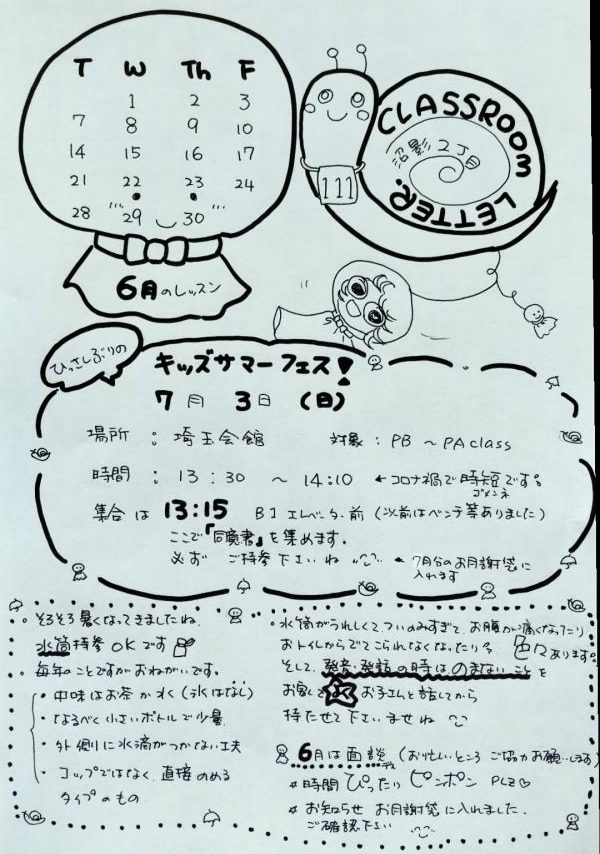 T W Th F
1 2 3
7 8 9 10
14 15 16 17
21 22 23 24
28 29 30
6月のレッスン
CLASSROOM LETTER.
沼影2丁目
111
ひっさしぶりの
キッズサマーフェス!
7月 3日 (日)
場所 : 埼玉会館 対象 : PB ~ PA class
時間 : 13:30 ~ 14:10 ←コロナ禍で時短です。
ゴメンネ
集合は 13:15 B1 エレベーター前 (以前はベンチ等ありました)
ここで「同意書」を集めます。
必ず ご持参下さいね ←7月分のお月謝袋に
入れます
・そろそろ暑くなってきましたね。
水筒持参OKです
・毎年のことですがおねがいです。
・中味はお茶か水 (氷はなし)
・なるべく小さいボトルで少量
・外側に水滴がつかない工夫
・コップではなく直接のめる
タイプのもの
・水筒がうれしくてついのみすぎて、お腹が痛くなったり
おトイレからでてこられなくなったり?色々あります。
そして、発音・発話の時はのまないことを
お家で お子さんと話してから
持たせて下さいませね
6月は面談 (お忙しいところ ご協力お願いします)
時間ぴったり ピンポン PLZ♡
お知らせ お月謝袋に入れました。
ご確認下さい